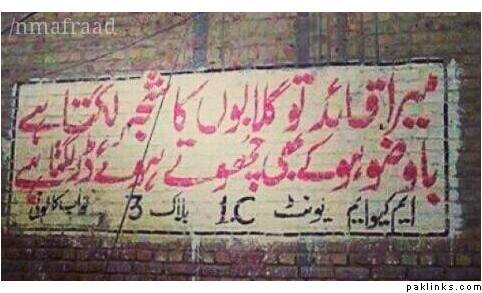 /nmafraad
میرا قائد تو گلابوں کا شجر لگتا ہے
با وضو ہو کے بھی چھوتے ہوئے ڈر لگتا ہے
ایم کیو ایم یونٹ 1.C بلاک 3 نواب کالونی
paklinks.com